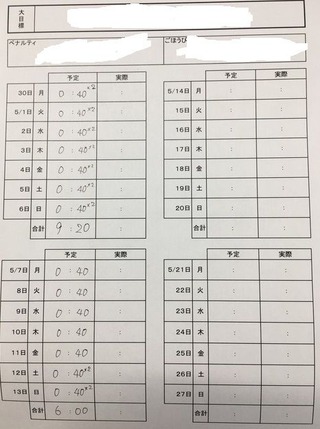 大目標
ペナルティ ごほうび
予定 実際
30日 月 0:40×2 :
5/1日 火 0:40×2 :
2日 水 0:40×2 :
3日 木 0:40×2 :
4日 金 0:40×2 :
5日 土 0:40×2 :
6日 日 0:40×2 :
合計 9:20 :
予定 実際
5/14日 月 : :
15日 火 : :
16日 水 : :
17日 木 : :
18日 金 : :
19日 土 : :
20日 日 : :
合計 : :
予定 実際
5/7日 月 0:40 :
8日 火 0:40 :
9日 水 0:40 :
10日 木 0:40 :
11日 金 0:40 :
12日 土 0:40×2 :
13日 日 0:40×2 :
合計 6:00 :
予定 実際
5/21日 月 : :
22日 火 : :
23日 水 : :
24日 木 : :
25日 金 : :
26日 土 : :
27日 日 : :
合計 : :